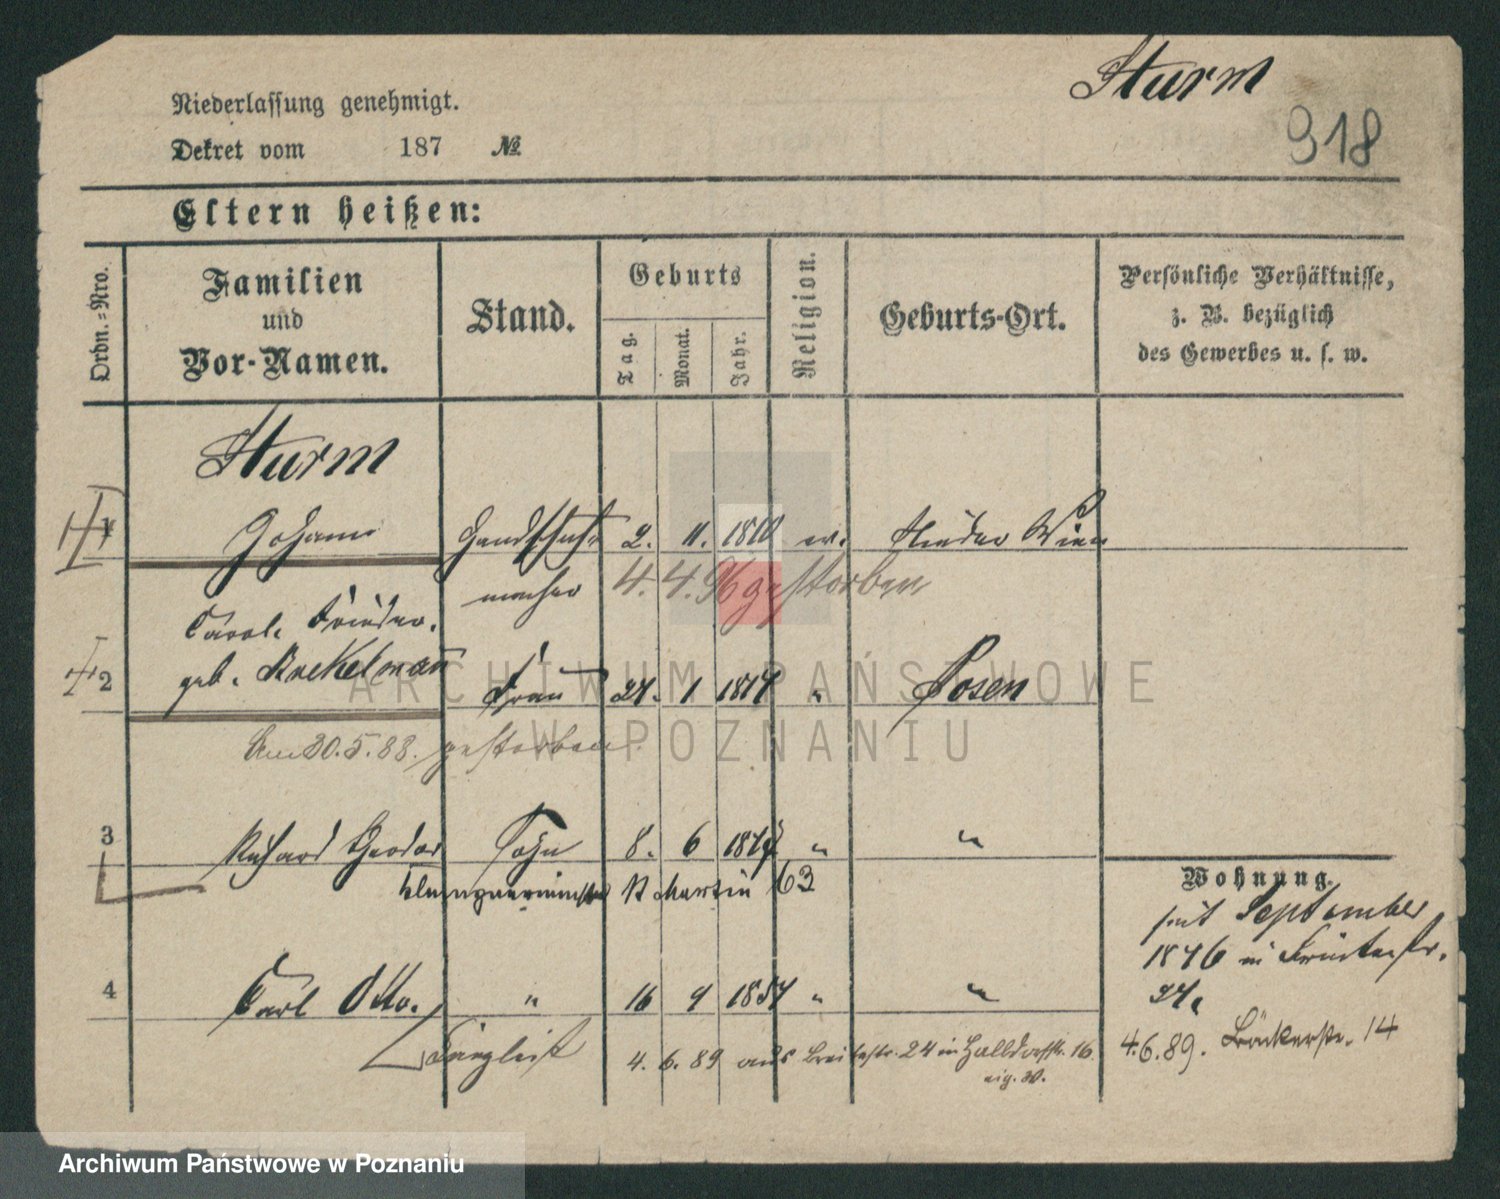 Sturm
918
Niederlassung genehmigt.
Dekret vom 187 №
Eltern heißen:
Ordn.-Nro.
Familien
und
Vor-Namen.
Stand.
Geburts
Tag.
Monat.
Jahr.
Religion.
Geburts-Ort.
Persönliche Verhältnisse,
z. B. bezüglich
des Gewerbes u. s. w.
Sturm
1 Johann Handschuh- 2. 11. 1810 ev. Wien
macher 4. 4. 96 gestorben
Carol. Frieder.
2 geb. Frau 24. 1 " Posen
Am 30. 5. 88. gestorben
3 Richard Theodor Sohn 8. 6 " "
Klempnermeister St Martin 63
Wohnung.
seit September
1876 in
24.
4 Carl Otto. " 16 9 " "
4. 6. 89 aus Breitestr. 24 in Halbdorfstr. 16
4.6.89. Bäckerstr. 14
ARCHIWUM PAŃSTWOWE
W POZNANIU
Archiwum Państwowe w Poznaniu